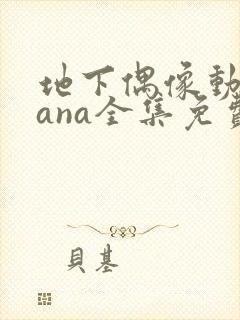 地下偶像動
ana全集免費
貝基